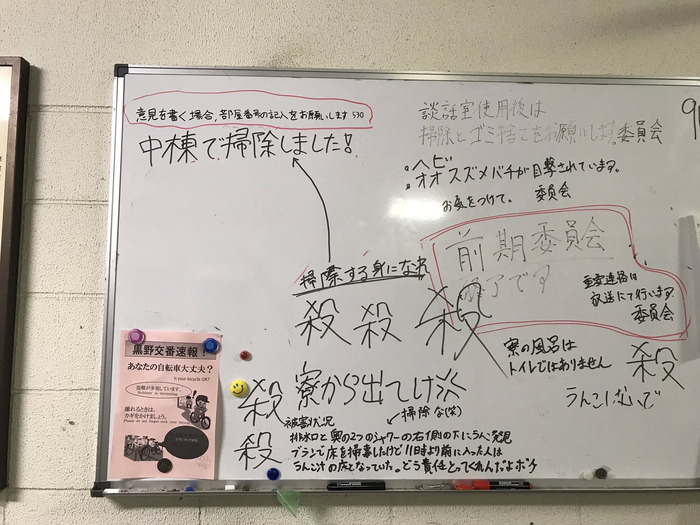 意見を書く場合、部屋番号の記入をお願いします 530
中棟で掃除しました!
談話室使用後は
掃除とゴミ捨てをお願いします。委員会
ヘビ
オオスズメバチが目撃されています。
お気をつけて。 委員会
前期委員会
終了です
重要連絡は
放送にて行います。
委員会
掃除する身になれ
殺 殺 殺
寮の風呂は
トイレではありません
殺
うんこしないで
殺 寮から出てけ
掃除な(笑)
殺
被害状況
排水口と奥の2つのシャワーの右側の下にうんこ発見
ブラシで床を掃除したけど11時より前に入った人は
うんこ汁の床となっていた。どう責任とってくれんだよボケ
黒野交番速報!
あなたの自転車大丈夫?
Is your bicycle OK?
盗難が多発しています。
Robbery is increasing.
離れるときは、
カギをかけましょう。
Please do not forget lock your bicycle